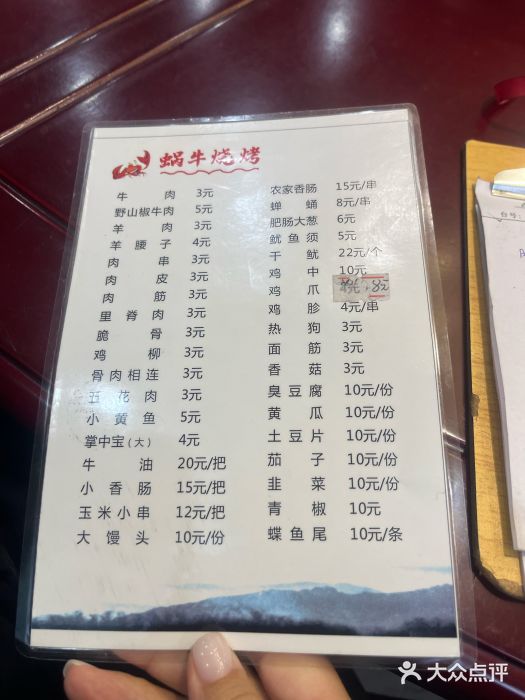 蜗牛烧烤
牛肉 3元
野山椒牛肉 5元
羊肉 3元
羊腰子 4元
肉串 3元
肉皮 3元
肉筋 3元
里脊肉 3元
脆骨 3元
鸡柳 3元
骨肉相连 3元
五花肉 3元
小黄鱼 5元
掌中宝(大) 4元
牛油 20元/把
小香肠 15元/把
玉米小串 12元/把
大馒头 10元/份
农家香肠 15元/串
蝉蛹 8元/串
肥肠大葱 6元
鱿鱼须 5元
干鱿 22元/个
鸡中 10元
鸡爪 8元
鸡胗 4元/串
热狗 3元
面筋 3元
香菇 3元
臭豆腐 10元/份
黄瓜 10元/份
土豆片 10元/份
茄子 10元/份
韭菜 10元/份
青椒 10元
蝶鱼尾 10元/条
台号:
大众点评